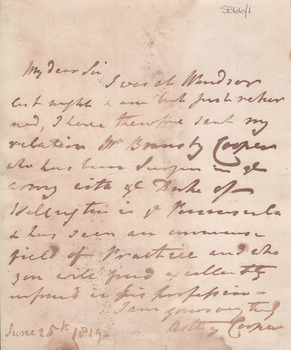 SB66/1
My dear Sir
I was at Windsor
last night & am but just retur
ned, I have therefore sent my
relation Mr Bransby Cooper
who has been Surgeon in ye
army with ye Duke of
Wellington in ye Peninsula
& has seen an immense
field of Practice and who
you will find excellently
informed in his profession
I am yours very truly
Astley Cooper
June 25th 1819